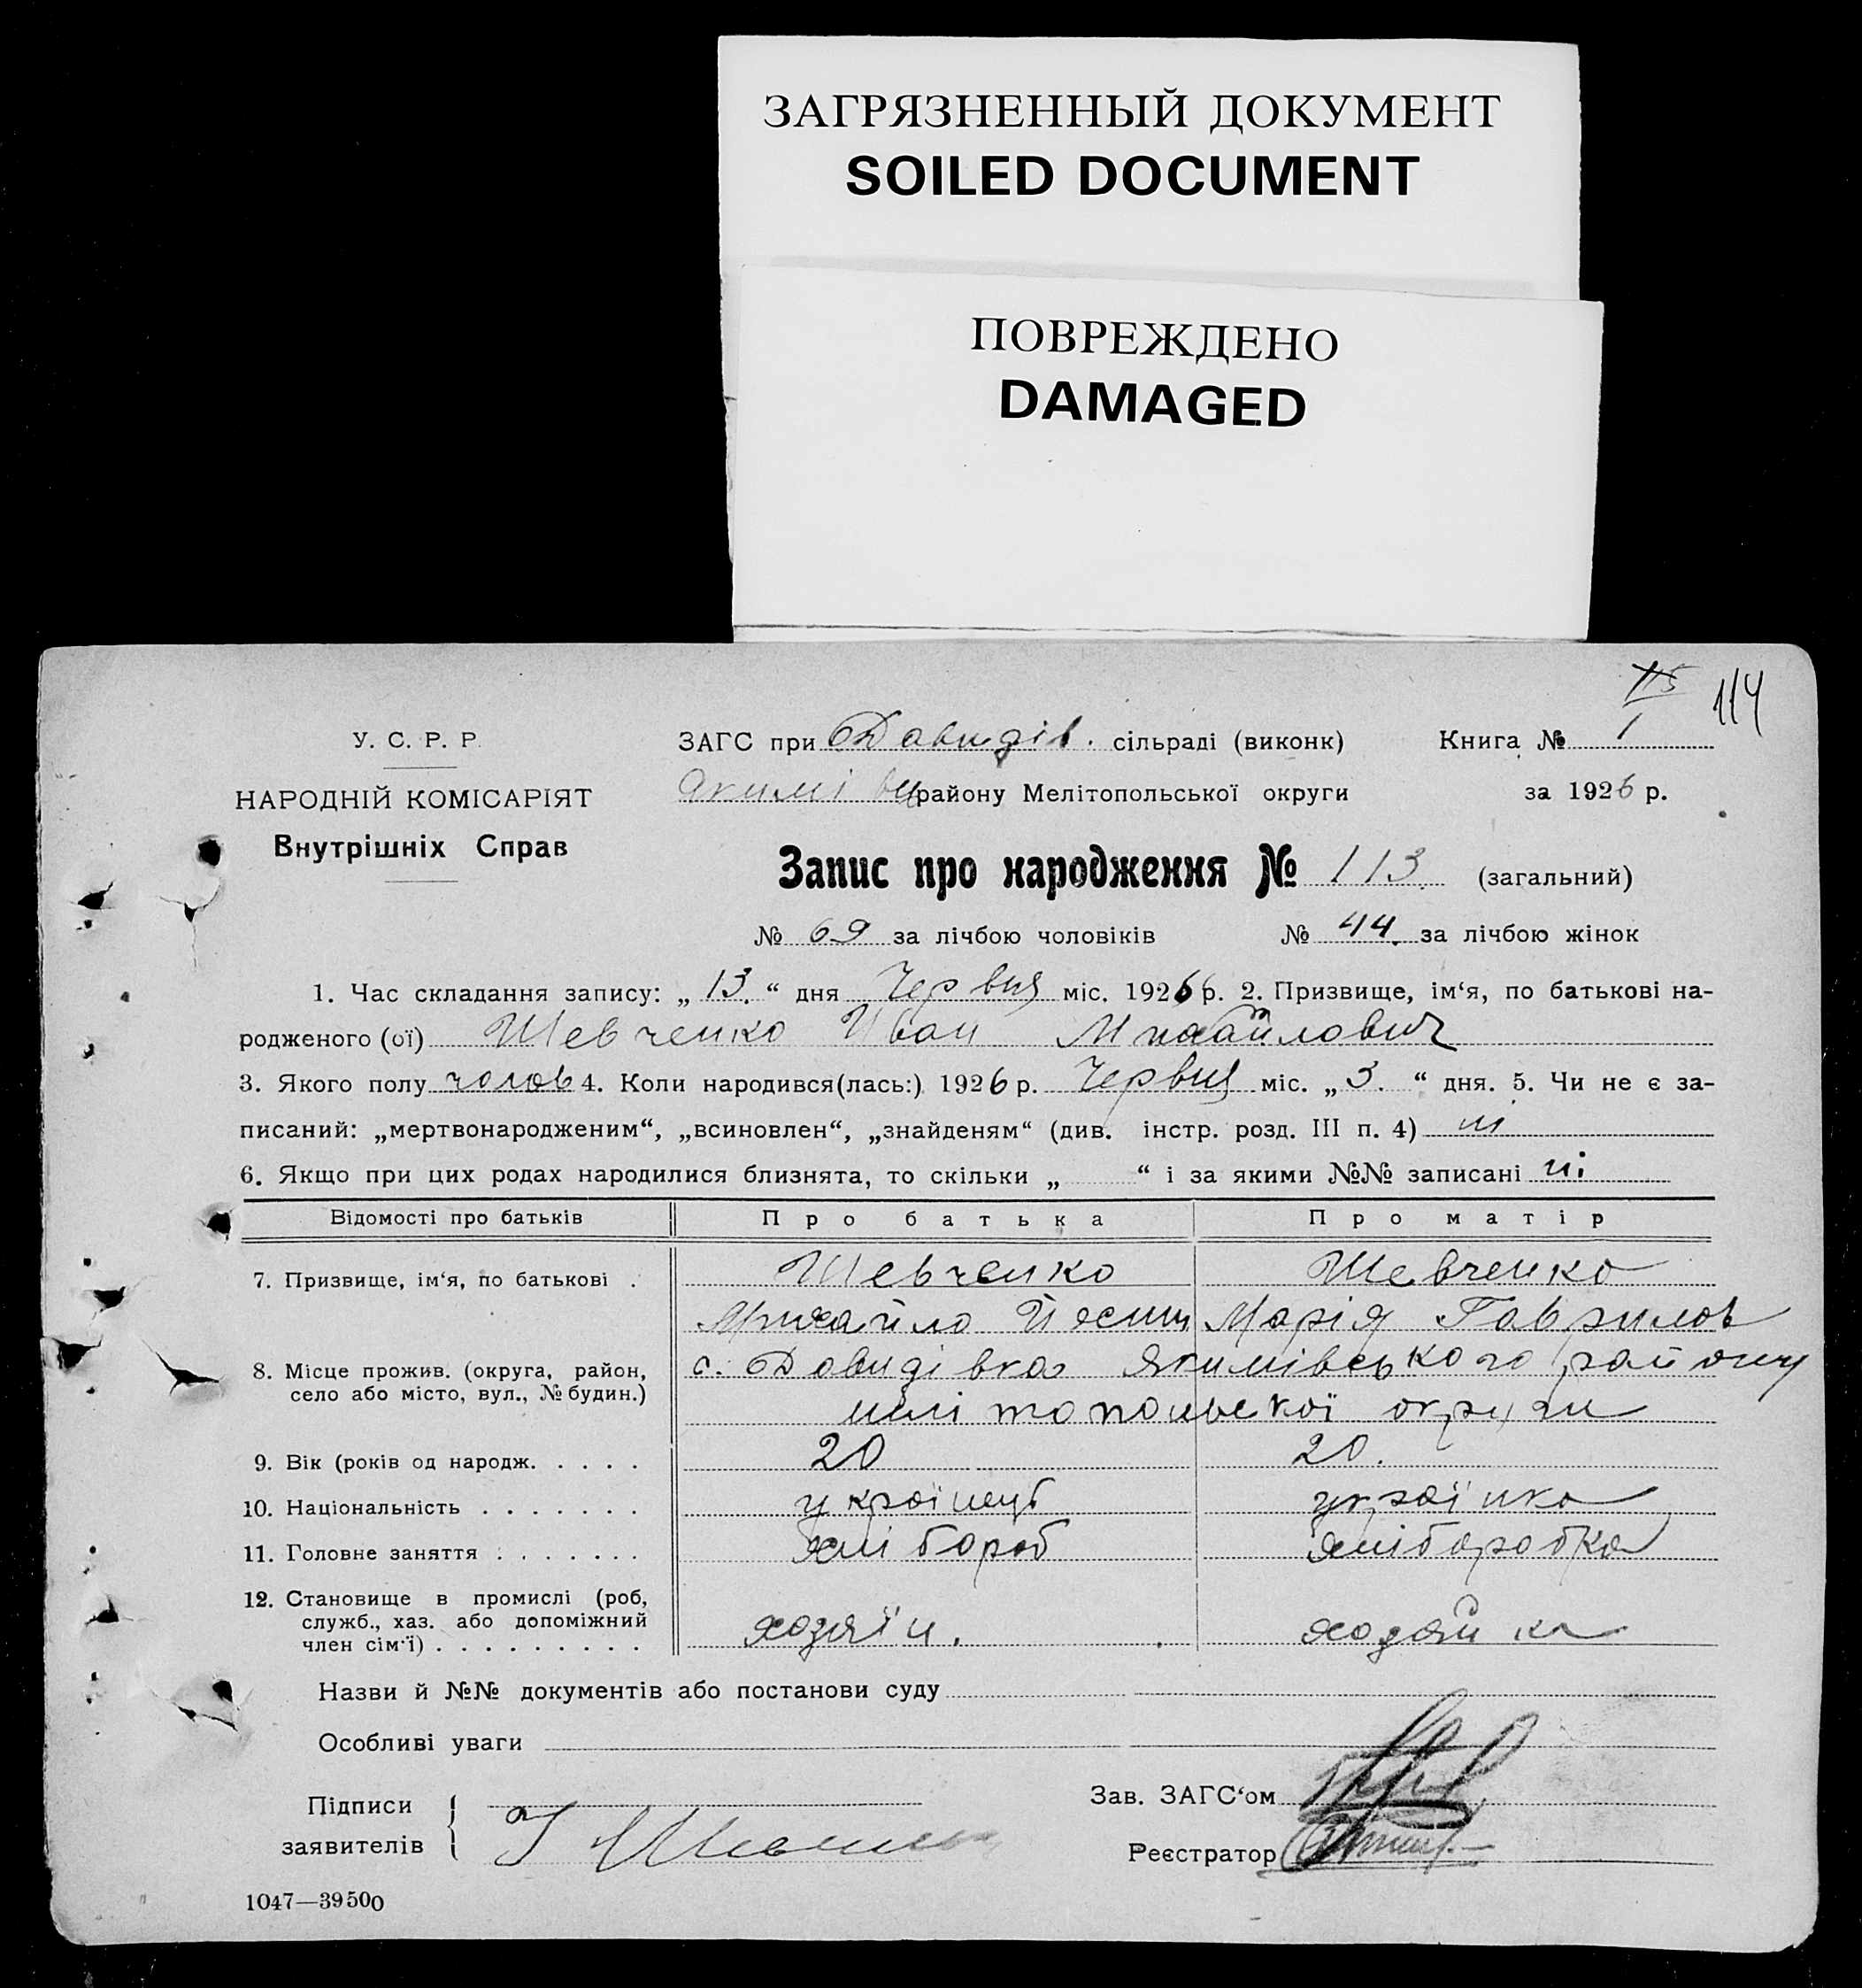 ЗАГРЯЗНЕННЫЙ ДОКУМЕНТ
SOILED DOCUMENT
ПОВРЕЖДЕНО
DAMAGED
115 114
У. С. Р. Р. ЗАГС при Давидів. сільраді (виконк) Книга № 1
НАРОДНІЙ КОМІСАРІЯТ Якимівц району Мелітопольської округи за 1926 р.
Внутрішніх Справ
Запис про народження № 113. (загальний)
№ 69 за лічбою чоловіків № 44. за лічбою жінок
1. Час складання запису: „ 13. “ дня Червня міс. 1926 р. 2. Призвище, ім‘я, по батькові на-
родженого (ої) Шевченко Иван Михайлович
3. Якого полу чолов 4. Коли народився(лась:) 1926 р. Червня міс. „ 3. “ дня. 5. Чи не є за-
писаний: „мертвонародженим“, „всиновлен“, „знайденям“ (див. інстр. розд. III п. 4) ні
6. Якщо при цих родах народилися близнята, то скільки „ “ і за якими №№ записані ні
Відомості про батьків Про батька Про матір
7. Призвище, ім‘я, по батькові . Шевченко Шевченко
Михайло Марія Гаврилов
8. Місце прожив. (округа, район, с. Давидівка Якимівського району
село або місто, вул., № будин.)
мелітопольскої округи
9. Вік (років од народж. . . . . 20 20.
10. Національність . . . . . . . українець українка
11. Головне заняття . . . . . . . хлібороб хліборобка
12. Становище в промислі (роб,
служб., хаз. або допоміжний
член сім‘ї) . . . . . . . . . хозяїн. хозяйка
Назви й №№ документів або постанови суду
Особливі уваги
Підписи Зав. ЗАГС‘ом
заявителів Реєстратор
1047—39500